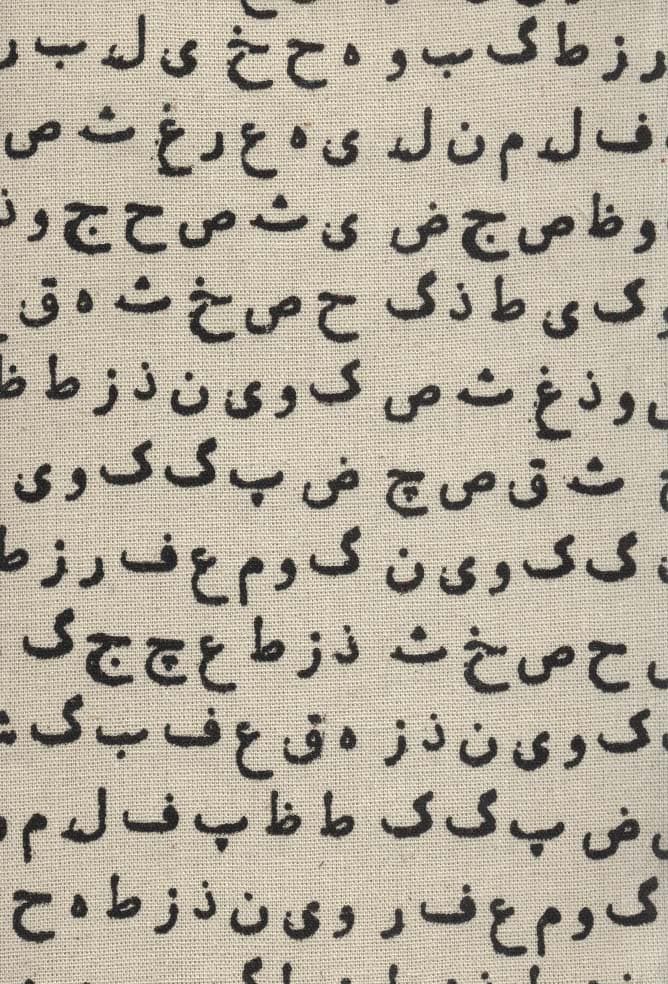 ر ز ط گ ب و ه ح خ ی لد ب ر
ف لد م ن لد ی ه ع ر غ ث ص
و ظ ص ج ض ی ث ص ح ج و ذ
ک ی ط ذ گ ح ص خ ث ه ق
و ذ غ ث ص ک و ی ن ذ ز ط ظ
ث ق ص چ ض پ گ ک و ی
گ ک و ی ن گ و م ع ف ر ز ط
ح ص خ ث ذ ز ط ع چ ج گ
ک و ی ن ذ ز ه ق ع ف ب گ ث
ض پ گ ک ط ظ پ ف لد م و
گ و م ع ف ر و ی ن ذ ز ط ه ح